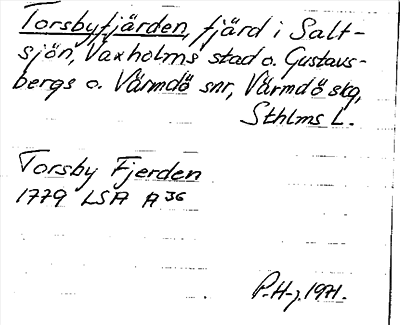 Torsbyfjärden, fjärd i Salt-
sjön, Vaxholms stad o. Gustavs-
bergs o. Värmdö snr, Värmdö skg,
Sthlms L.
Torsby Fjerden
1779 LSA A 36
P.H-j. 1971.